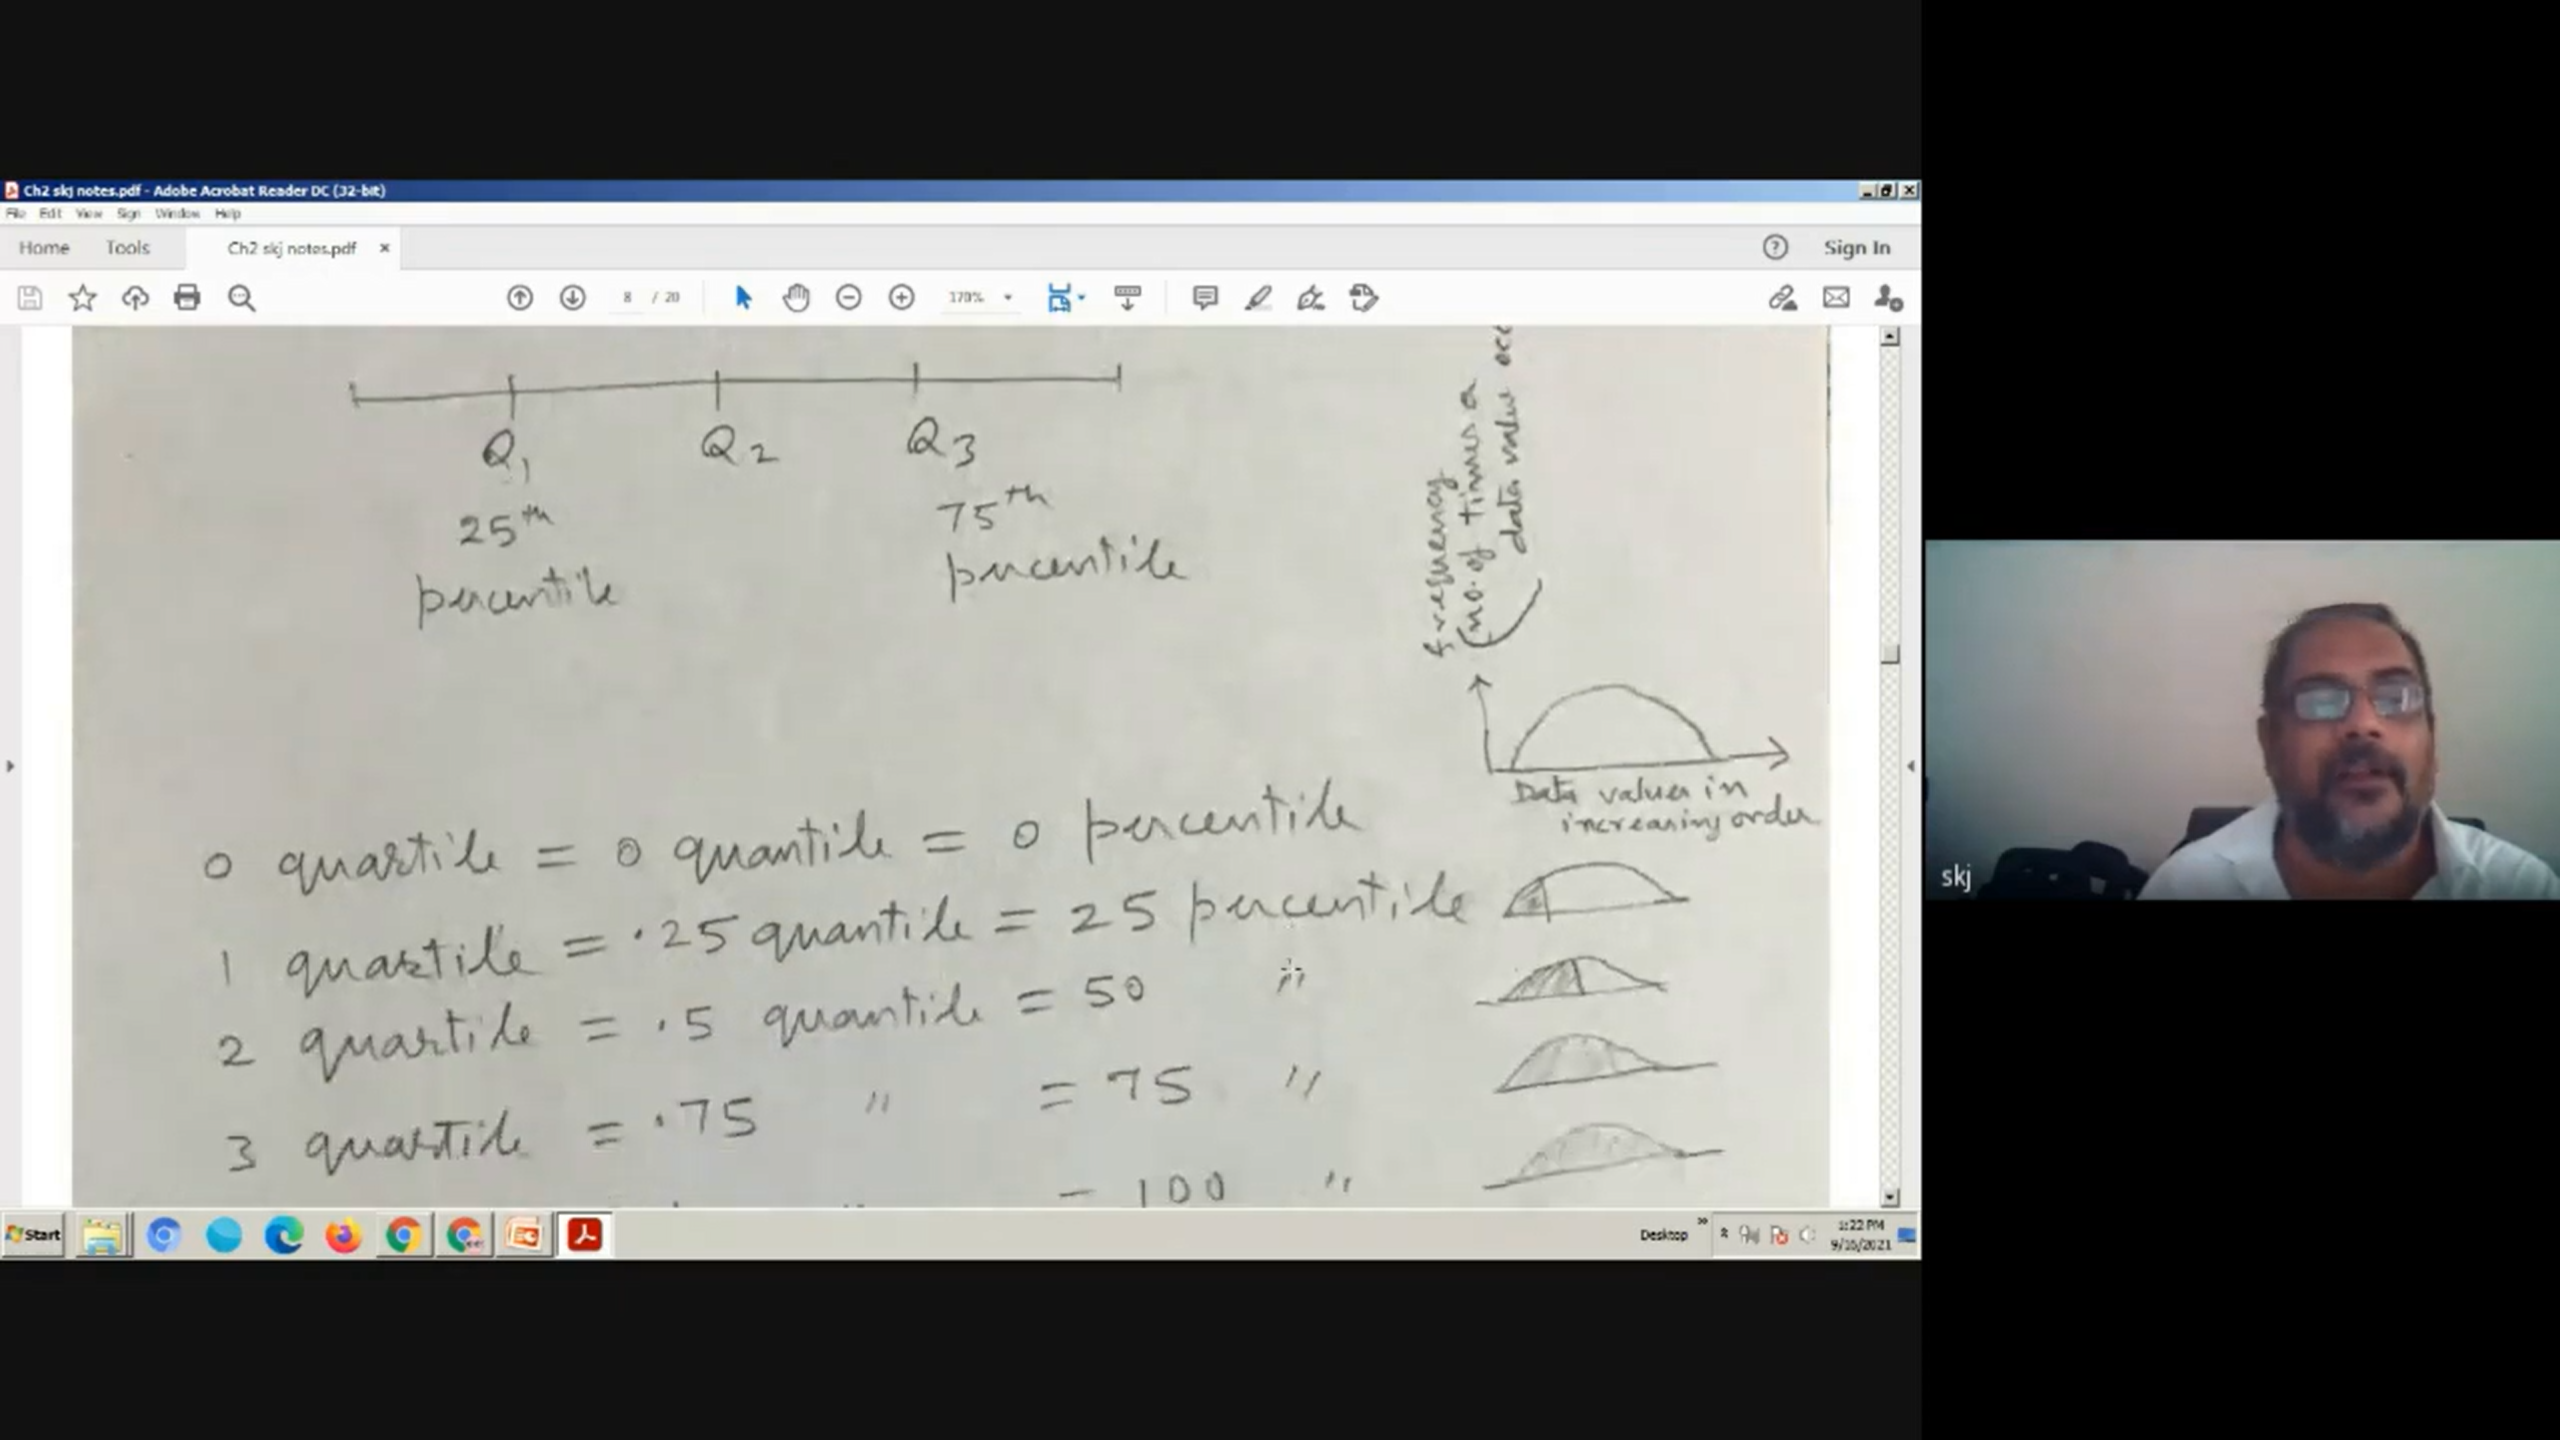 Ch2 skj notes.pdf - Adobe Acrobat Reader DC (32-bit)
File Edit View Sign Window Help
Home Tools Ch2 skj notes.pdf × ? Sign In
8 / 20 170%
Q1 Q2 Q3
25th percentile
75th percentile
frequency
(no. of times a
data value occ
Data values in
increasing order
0 quartile = 0 quantile = 0 percentile
1 quartile = .25 quantile = 25 percentile
2 quartile = .5 quantile = 50 "
3 quartile = .75 " = 75 "
100 "
skj
Start Desktop » 1:22 PM
9/16/2021